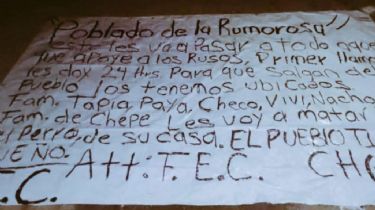 "Poblado de la Rumorosa"
Esto les va a Pasar a todo aquel
que apoye a los Rusos, Primer llama
les doy 24 Hrs. Para que Salgan del
Pueblo los tenemos ubicados.
Fam. Tapia, Paya, Checo, Vivi, Nacho
Fam. de Chepe Les voy a matar
el Perro, de su casa. EL PUEBLO TI
UEÑO. Att: F.E.C. CH
.C.